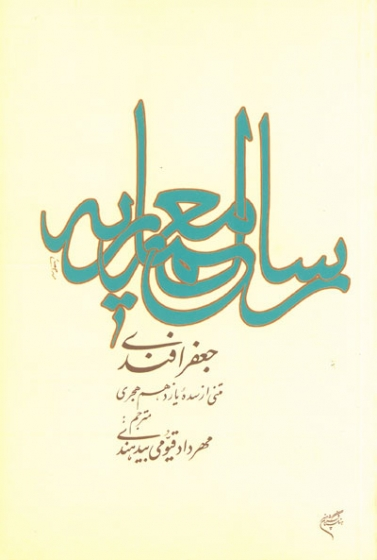 رسالهٔ معماریه
جعفر افندی
متنی از سدهٔ یازدهم هجری
مترجم:
مهرداد قیومی بیدهندی